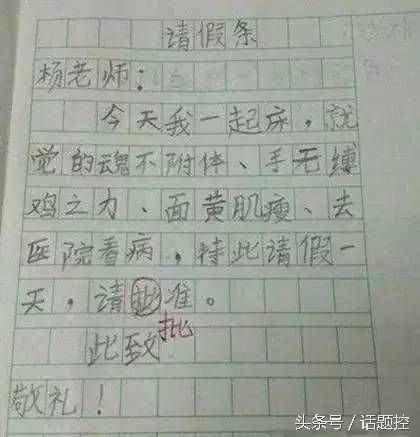 请假条
杨老师：
今天我一起床，就
觉的魂不附体、手无缚
鸡之力、面黄肌瘦、去
医院看病，特此请假一
天，请批准。
批
此致
敬礼！
头条号/话题控